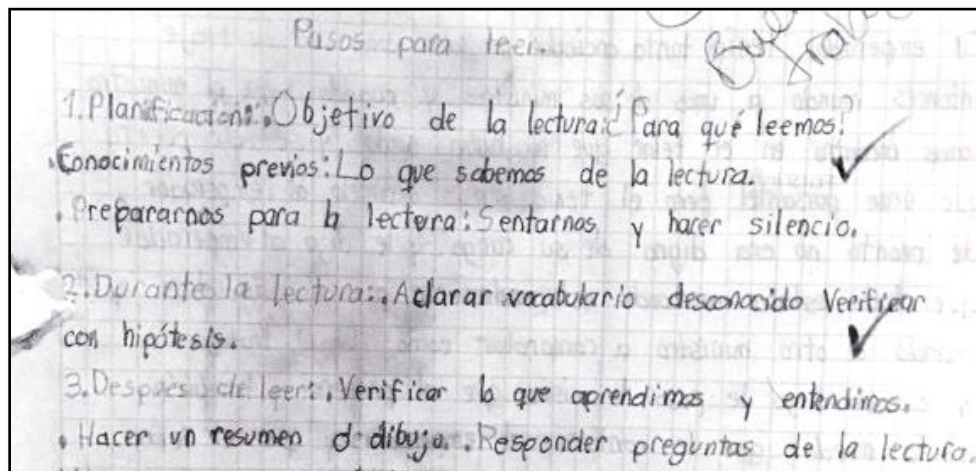 Pasos para leer.
Buen
trabajo
1. Planificación: . Objetivo de la lectura: ¿Para qué leemos?
. Conocimientos previos: Lo que sabemos de la lectura.
. Prepararnos para la lectura: Sentarnos y hacer silencio.
2. Durante la lectura: . Aclarar vocabulario desconocido Verificar
con hipótesis.
3. Después de leer: . Verificar lo que aprendimos y entendimos.
. Hacer un resumen o dibujo. . Responder preguntas de la lectura.